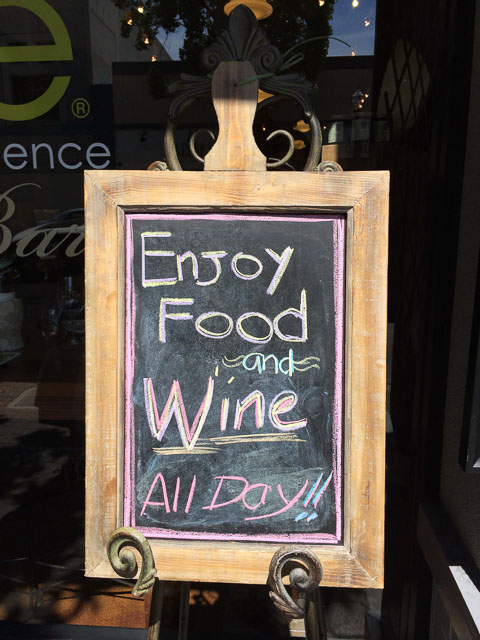 e®
ence
Bar
Enjoy
Food
~and~
Wine
All Day!!